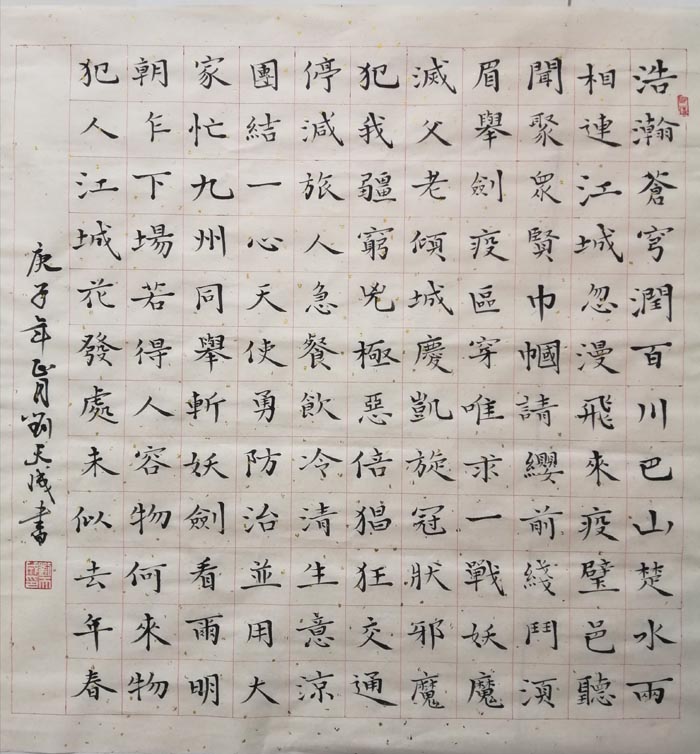 浩瀚蒼穹潤百川巴山楚水雨
相連江城忽漫飛來疫璧邑聽
聞聚眾賢巾幗請纓前綫鬥須
眉舉劍疫區穿唯求一戰妖魔
滅父老傾城慶凱旋冠狀邪魔
犯我疆窮兇極惡倍猖狂交通
停減旅人急餐飲冷清生意涼
團結一心天使勇防治並用大
家忙九州同舉斬妖劍看雨明
朝乍下場若得人容物何來物
犯人江城花發處未似去年春
庚子年正月劉天成書